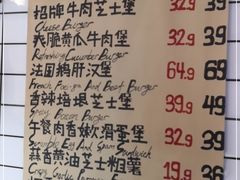 招牌牛肉芝士堡 32.9 39
Cheese Burger
爽脆黄瓜牛肉堡 32.9 39
Refreshing Cucumber Burger
法国鹅肝汉堡 64.9 69
French Foie gras And Beef Burger
香辣培根芝士堡 39.9 49
Spicy Bacon Burger
午餐肉香软滑蛋堡 32.9 39
Scramble Egg And Spam Sandwich
蒜香黄油芝士粗薯 19.9 36
Crispy Garlic